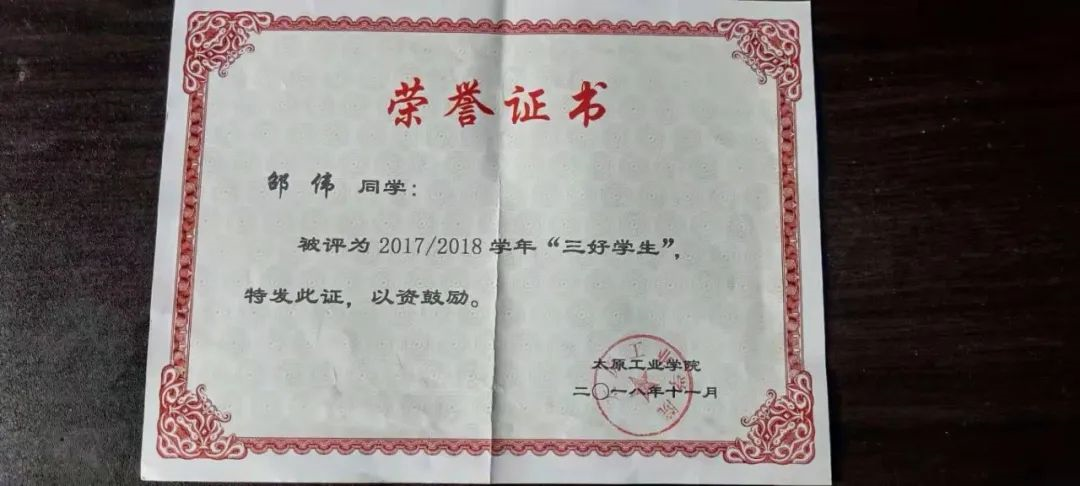 荣誉证书
邵伟 同学：
被评为2017/2018学年“三好学生”，
特发此证，以资鼓励。
太原工业学院
二〇一八年十一月